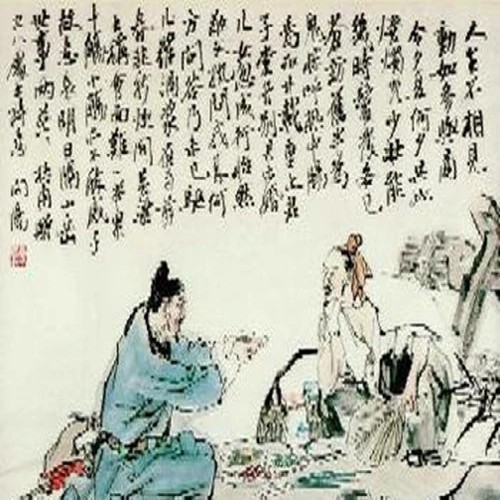 人生不相見
動如參與商
今夕復何夕共此
燈燭光少壯能
幾時鬢髮各已
蒼訪舊半為
鬼驚呼熱中腸
焉知廿載重上君
子堂昔別君未婚
兒女忽成行怡然
敬父執問我來何
方問答乃未已驅
兒羅酒漿夜雨剪
春韭新炊間黃粱
主稱會面難一舉累
十觴十觴亦不醉感子
故意長明日隔山岳
世事兩茫茫杜甫贈
衛八處士詩意